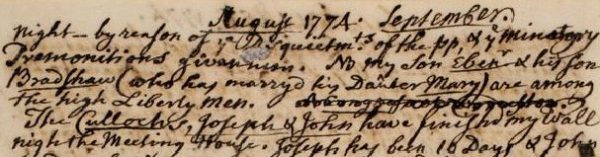 August 1774. September.
night — by reason of ye Disquietmts of the pp, & ye minatory
Premonitions given him. NB my Son Ebenr & his son
Bradshaw (who has marryd his Dauter Mary) are among
the high Liberty Men.
The Cullochs, Joseph & John have finishd my Wall
nigh the Meeting House. Joseph has been 16 Days & John